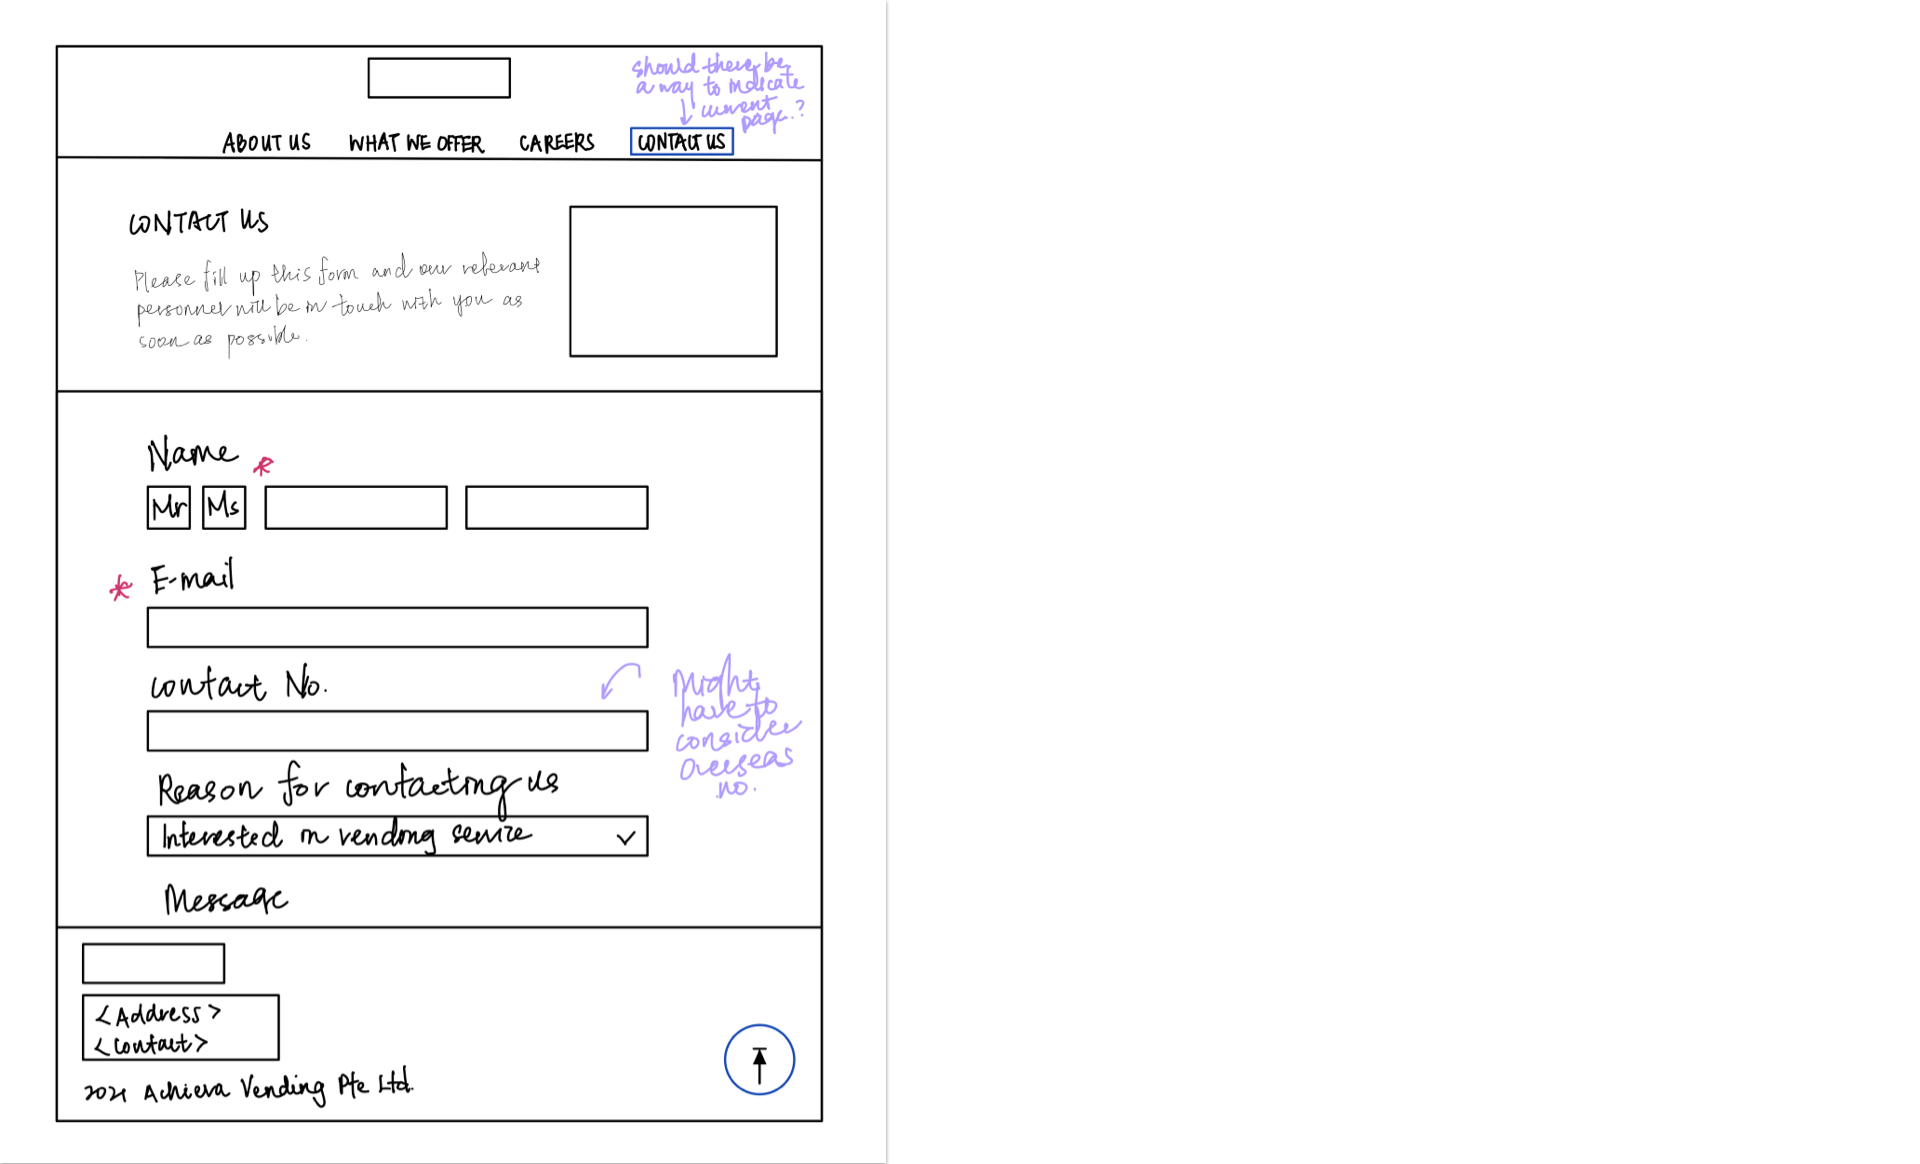 should there be
a way to indicate
current
page.?
ABOUT US WHAT WE OFFER CAREERS CONTACT US
CONTACT US
Please fill up this form and our relevant
personnel will be in touch with you as
soon as possible.
Name *
Mr Ms
* E-mail
Contact No.
Might
have to
consider
overseas
no.
Reason for contacting us
Interested in vending service
Message
<Address>
<Contact>
2021 Achieva Vending Pte Ltd.